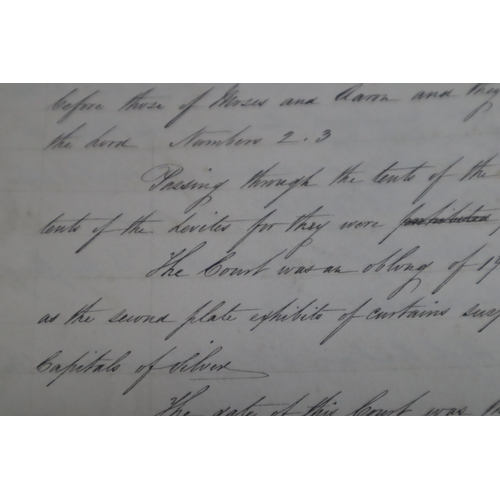 before those of Moses and Aaron and they
the Lord Numbers 2.3
Passing through the tents of the
tents of the Levites for they were prohibited
The Court was an oblong of 19
as the second plate exhibits of curtains susp
Capitals of Silver
The gate of this Court was th